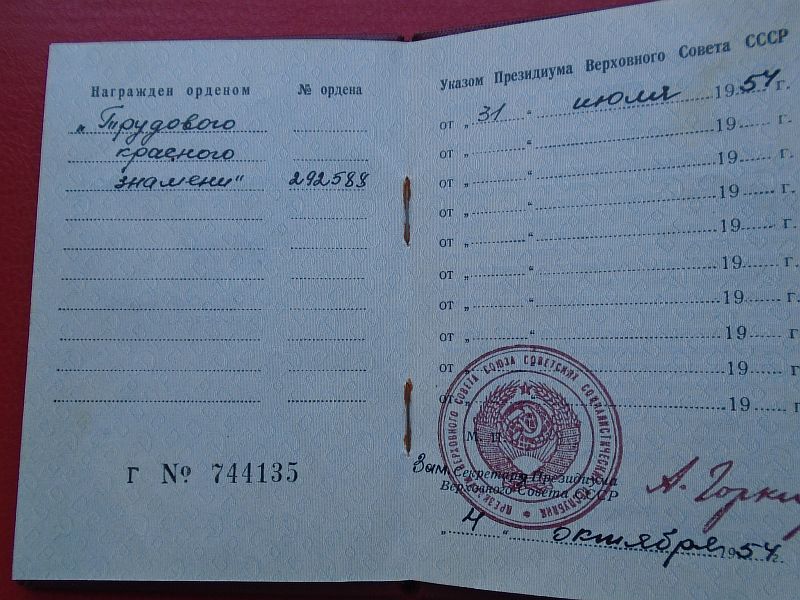 Награжден орденом № ордена
„Трудового
красного
знамени“ 292588
Г № 744135
Указом Президиума Верховного Совета СССР
от „31“ июля 1954 г.
от „ “ 19 г.
от „ “ 19 г.
от „ “ 19 г.
от „ “ 19 г.
от „ “ 19 г.
от „ “ 19 г.
от „ “ 19 г.
от „ “ 19 г.
от 19 г.
М. П.
ПРЕЗИДИУМ ВЕРХОВНОГО СОВЕТА СОЮЗА СОВЕТСКИХ СОЦИАЛИСТИЧЕСКИХ РЕСПУБЛИК
Зам. Секретарь Президиума
Верховного Совета СССР
А. Горкин
„4“ октября 1954 г.